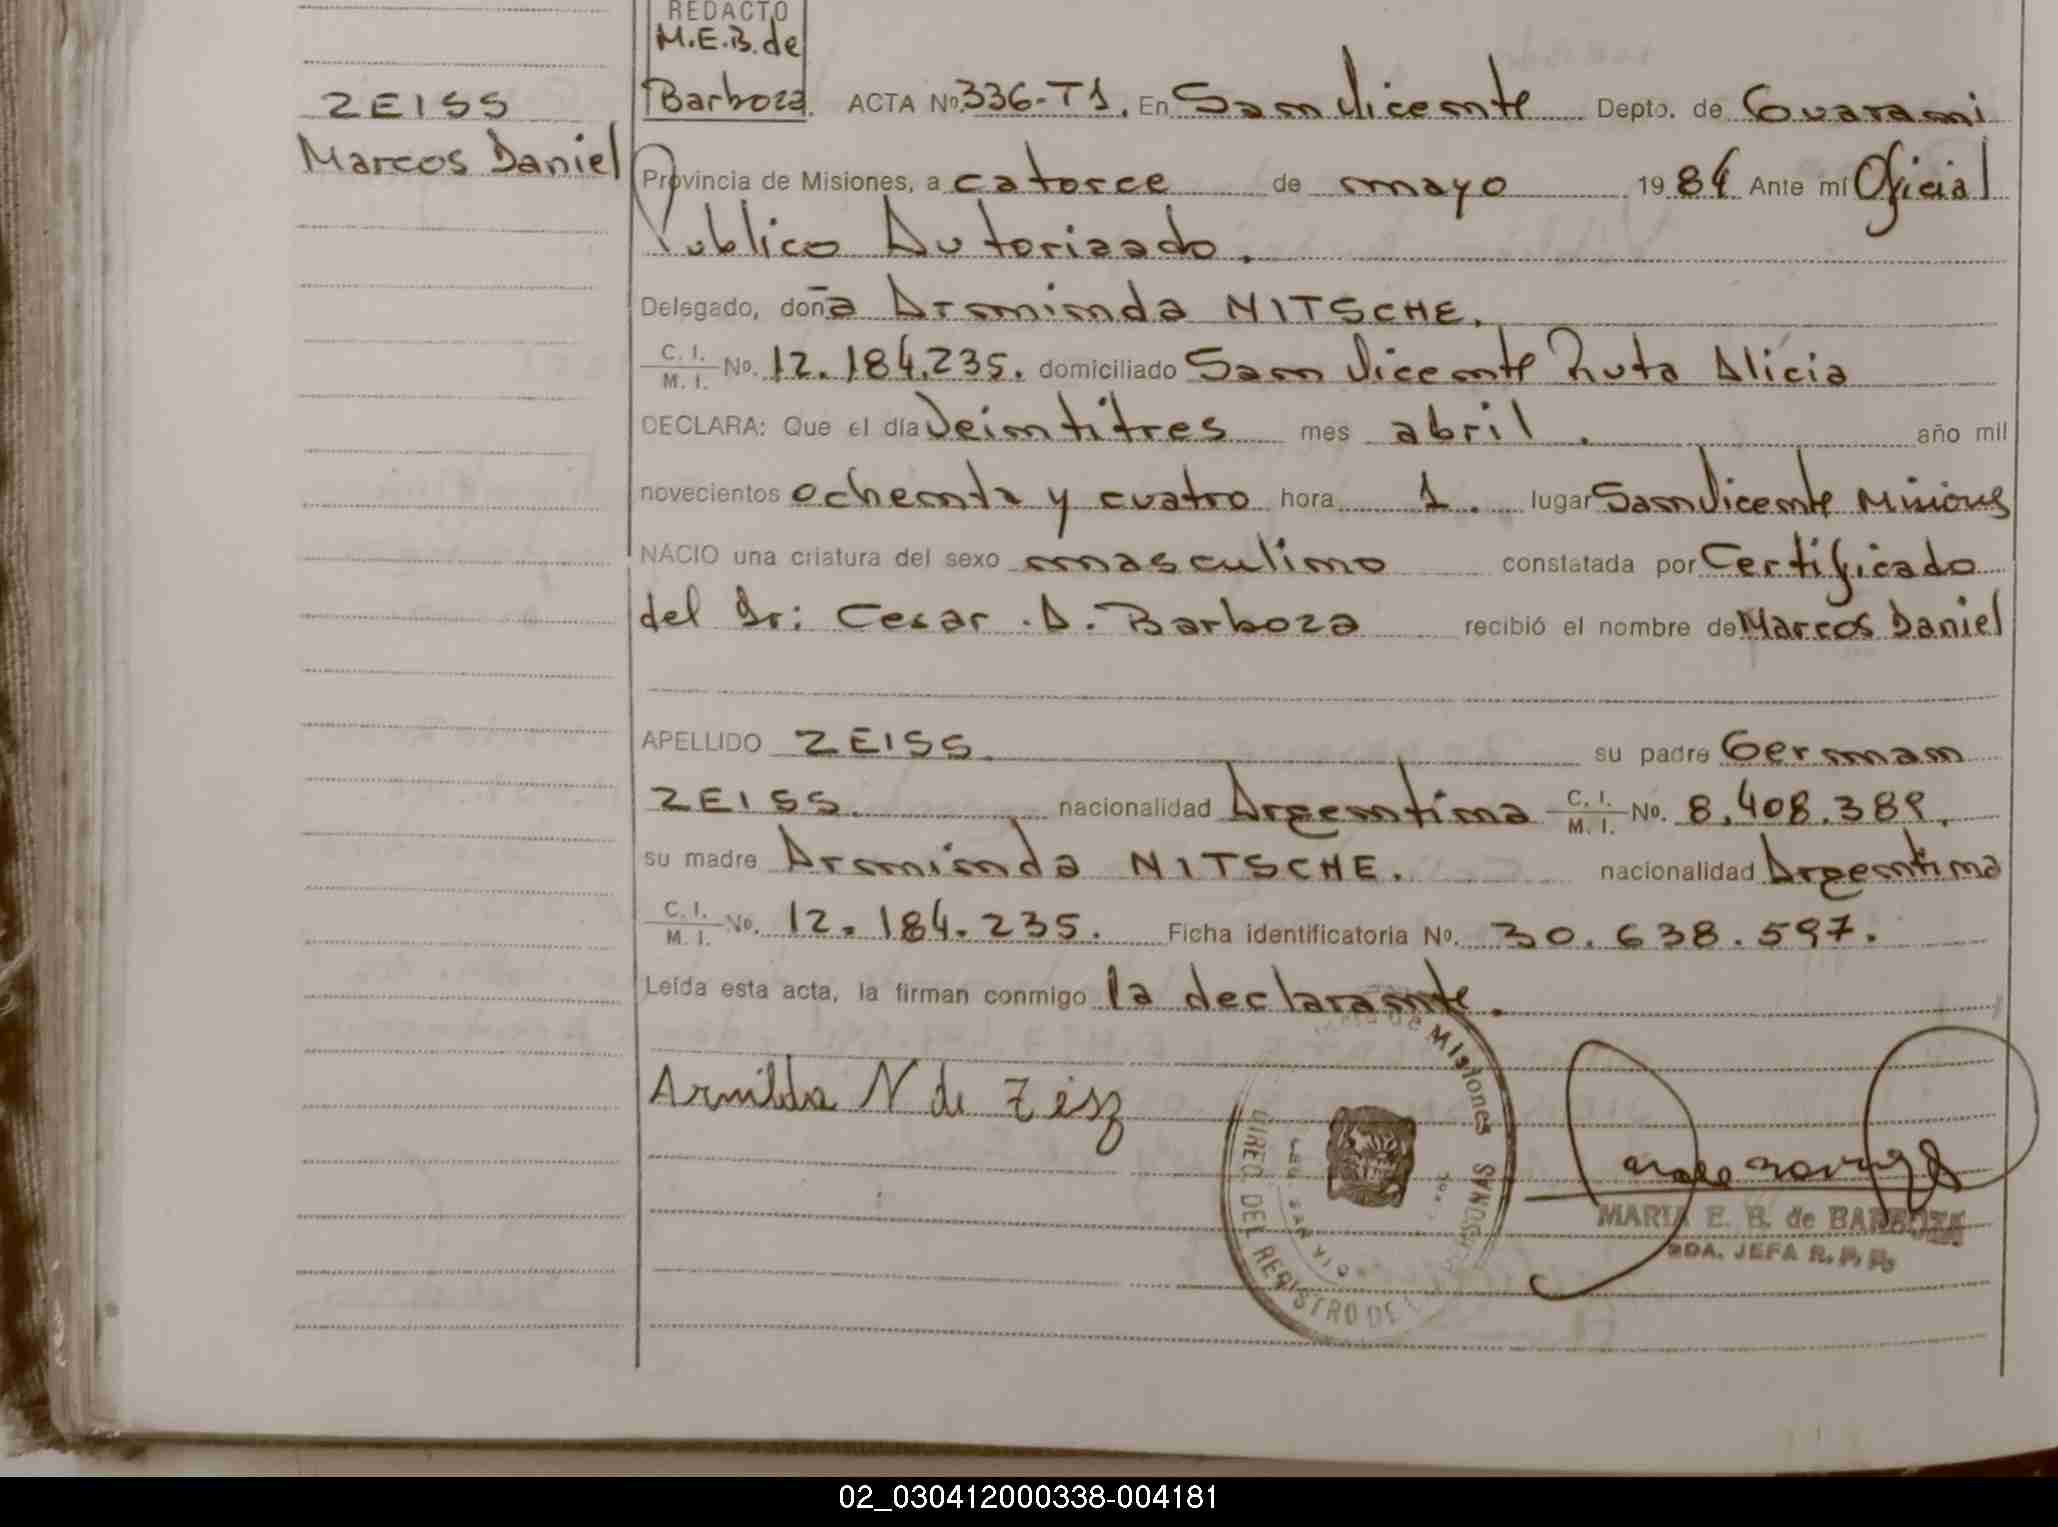 REDACTO
M.E.B. de
Barboza.
ZEISS
Marcos Daniel
ACTA Nº 336-T1. En San Vicente Depto. de Guarani
Provincia de Misiones, a catorce de mayo 1984 Ante mí Oficial
Publico Autorizado.
Delegado, doña Arminda NITSCHE.
C. I. / M. I. No. 12.184.235. domiciliado San Vicente Ruta Alicia
DECLARA: Que el día Veintitres mes abril. año mil
novecientos ochenta y cuatro hora 1. lugar San Vicente Misiones
NACIO una criatura del sexo masculino constatada por Certificado
del Dr: Cesar .A. Barboza recibió el nombre de Marcos Daniel
APELLIDO ZEISS. su padre German
ZEISS. nacionalidad Argentina C. I. / M. I. No. 8.408.389.
su madre Arminda NITSCHE. nacionalidad Argentina
C. I. / M. I. No. 12.184.235. Ficha identificatoria No. 30.638.597.
Leída esta acta, la firman conmigo la declarante.
Armilda N de Zeisz
de Misiones
DIREC. DEL REGISTRO DE L
MARIA E. B. de BARBOZA
2DA. JEFA R. P. P.
02_030412000338-004181